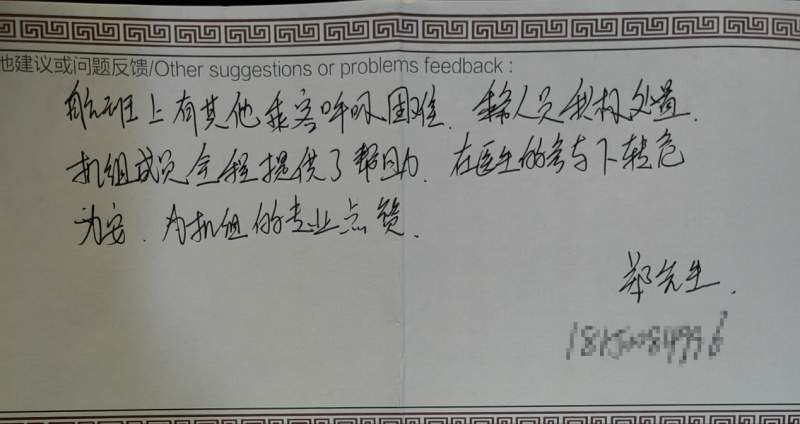 他建议或问题反馈/Other suggestions or problems feedback :
航班上有其他乘客呼吸困难. 乘务人员积极处置.
机组成员全程提供了帮助. 在医生的参与下转危
为安. 为机组的专业点赞.
郑先生.